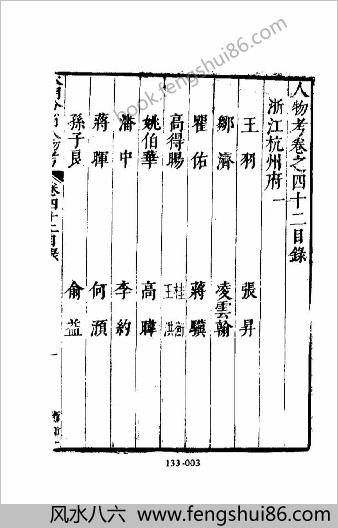 book.fengshui86.com
人物考卷之四十二目錄
浙江杭州府一
王羽 張昇
鄒濟 凌雲翰
瞿佑 蔣驥
高得暘 桂衡 王洪
姚伯華 高
潘中 李約
蔣暉 何
孫子良 俞益
分省人物考 卷四十二目錄 一
133-003
风水八六 www.fengshui86.com